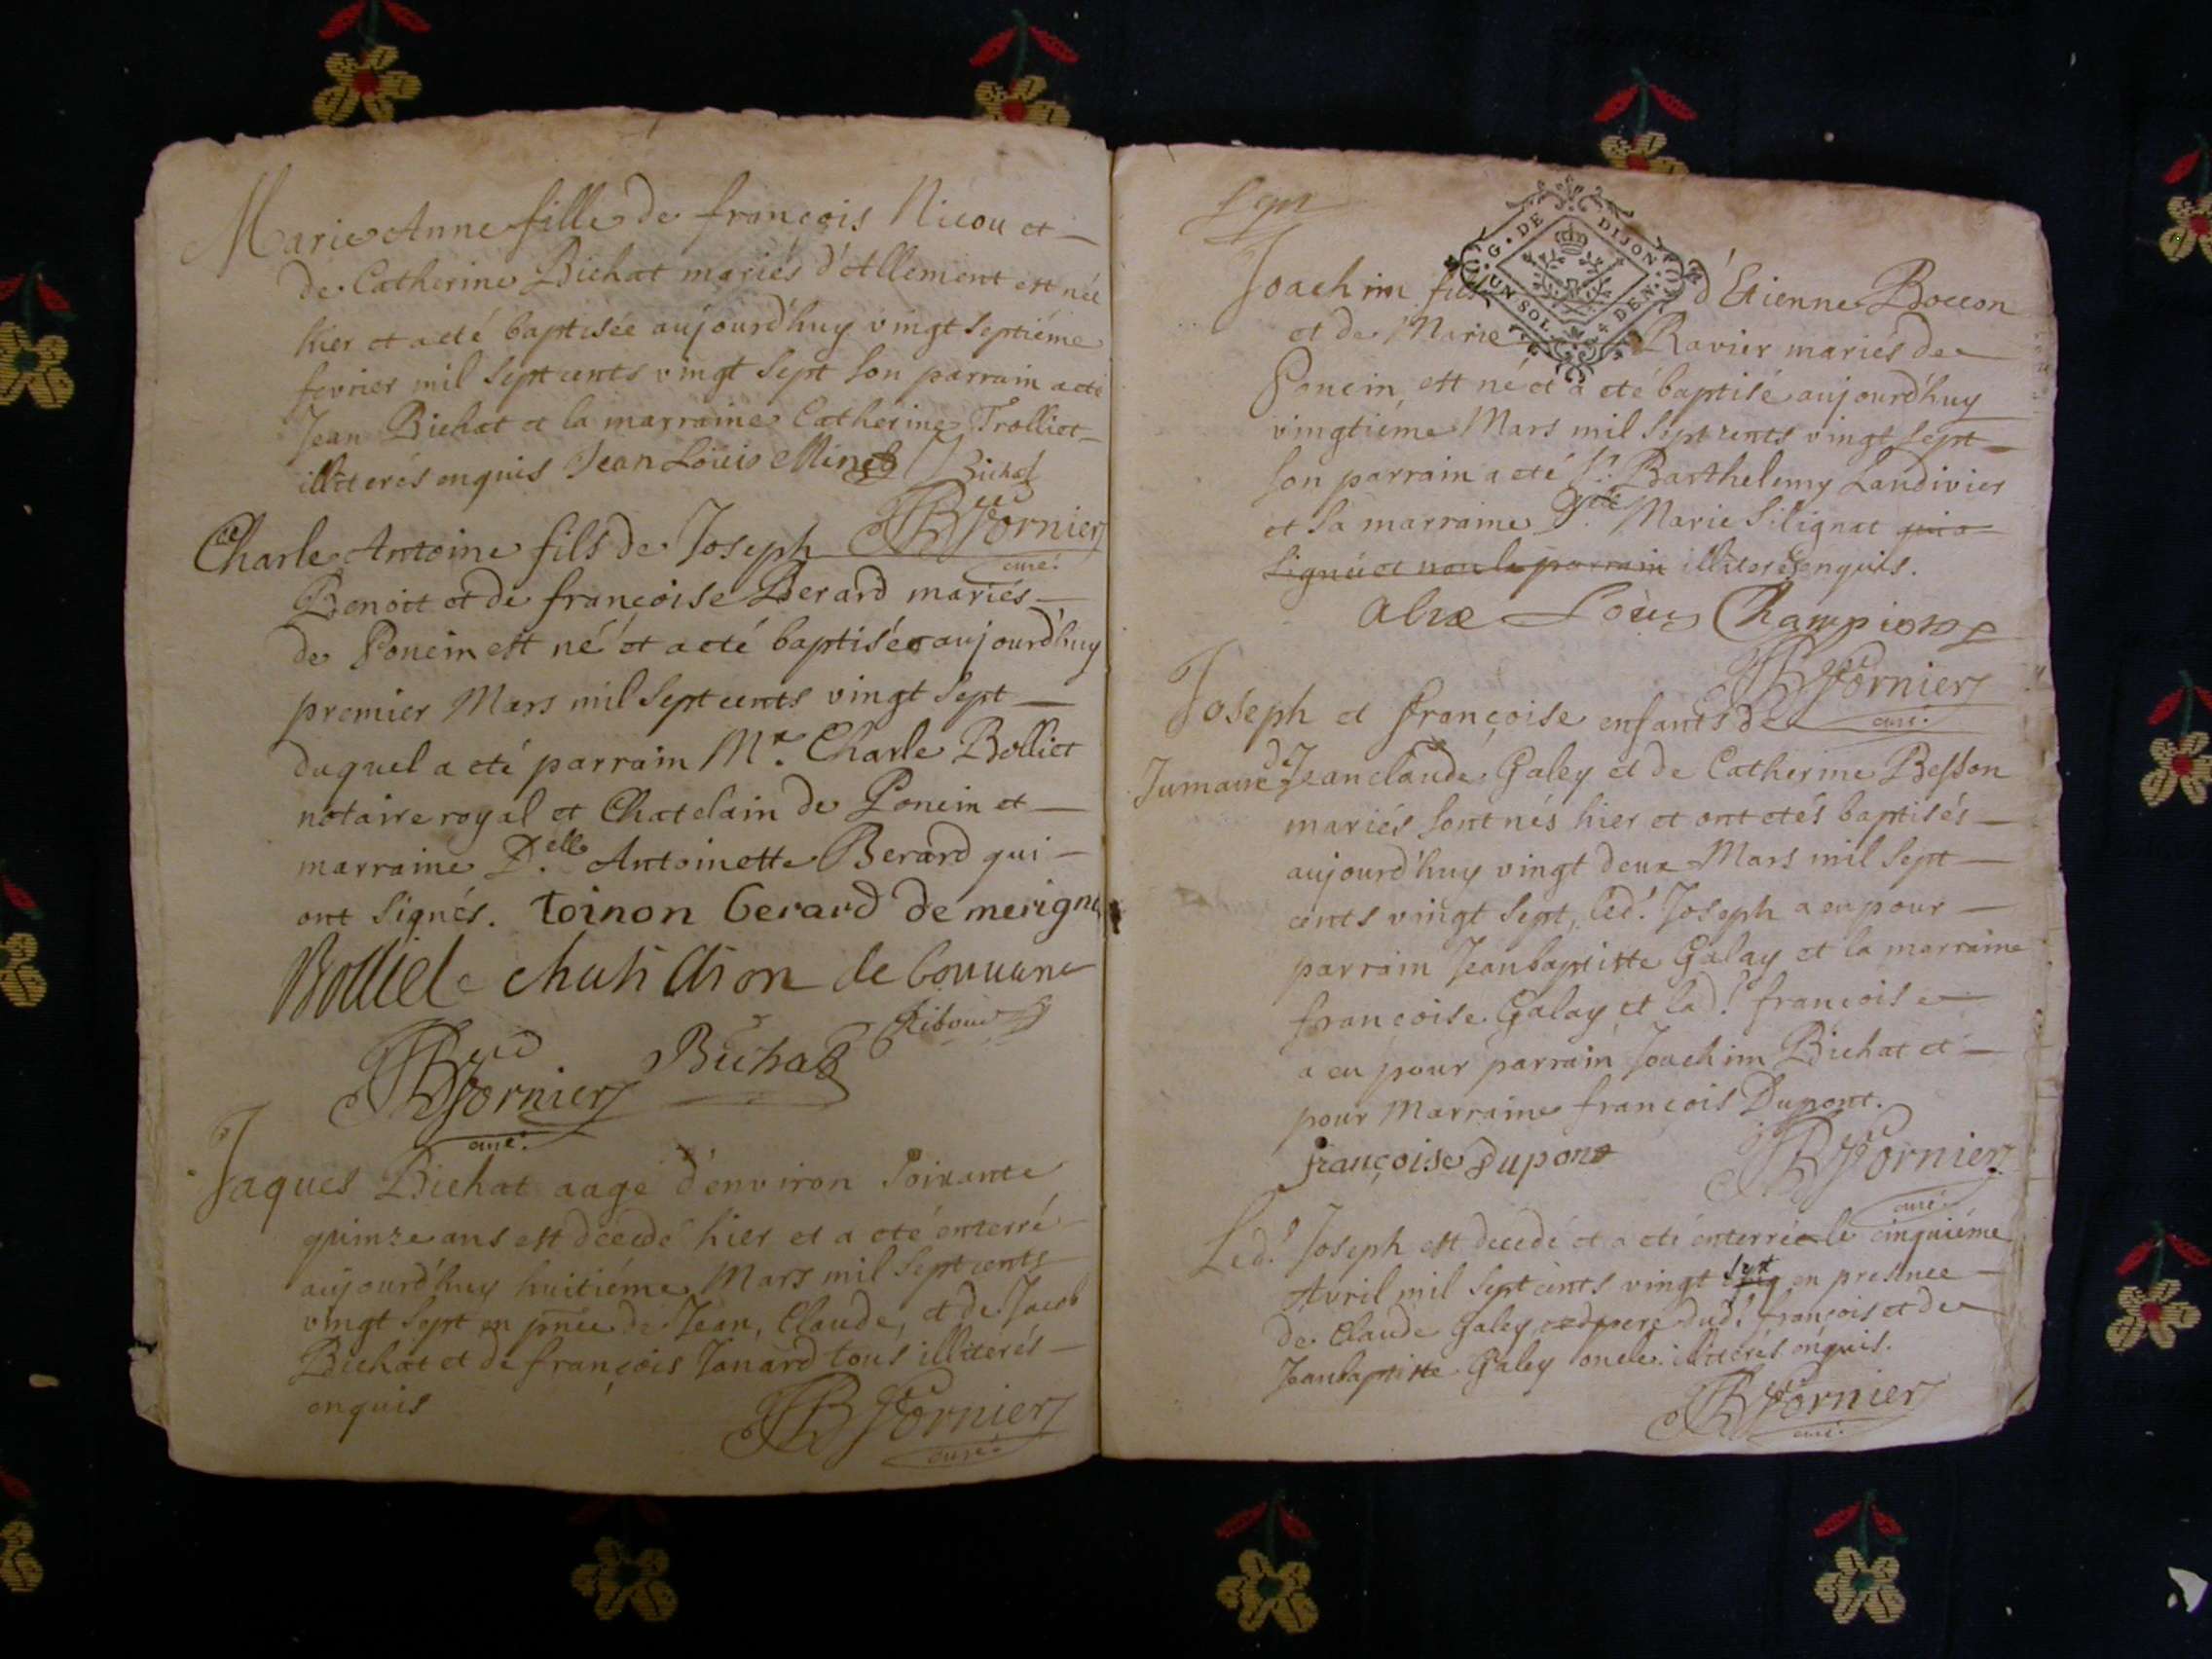 Marie Anne fille de françois Nicou et
de Catherine Bichat mariés d'Allement est née
hier et a eté baptisée aujourd'huy vingt septiéme
fevrier mil sept cents vingt sept son parrain a eté
Jean Bichat et la marraine Catherine Trolliet
illiterés enquis Jean Louis Minet Bichat
JB Fornier
curé.
Charle Antoine fils de Joseph
Benoit et de françoise Berard mariés
de Poncin est né et a eté baptisé aujourd'huy
premier Mars mil sept cents vingt sept
duquel a eté parrain Mr. Charle Bolliet
notaire royal et Chatelain de Poncin et
marraine D.elle Antoinette Berard qui
ont signés. toinon berard de merigna
Bolliet chatillion de
Riboud
JB Fornier Bichat
curé.
Jaques Bichat aagé d'environ soixante
quinze ans est decedé hier et a eté enterré
aujourd'huy huitiéme Mars mil sept cents
vingt sept en pnce de Jean, Claude, et de Jacob
Bichat et de françois Janard tous illiterés
enquis
JB Fornier
curé.
Sept
G. DE DIJON.
UN SOL. 4 DEN.
Joachim fils d'Etienne Boccon
et de Marie Ravier mariés de
Poncin, est né et a eté baptisé aujourd'huy
vingtiéme Mars mil sept cents vingt sept
son parrain a eté Sr. Barthelemy Landivier
et sa marraine D.lle Marie Silignat qui a
signée et non le parrain illiterés enquis.
Louis Champion
JB Fornier
curé.
Joseph et françoise enfants de
Jumaux de Jeanclaude Galey et de Catherine Besson
mariés sont nés hier et ont etés baptisés
aujourd'huy vingt deux Mars mil sept
cents vingt sept, led.t Joseph a eu pour
parrain Jeanbaptiste Galay et la marraine
françoise Galay et lad.te françoise
a eu pour parrain Joachim Bichat et
pour Marraine françois Dupont.
françoise dupont JB Fornier
curé.
Led.t Joseph est decedé et a eté enterré le cinquiéme
Avril mil sept cents vingt sept en presence
de Claude Galey pere dud.t françois et de
Jeanbaptiste Galey oncle illiterés enquis.
JB Fornier
curé.